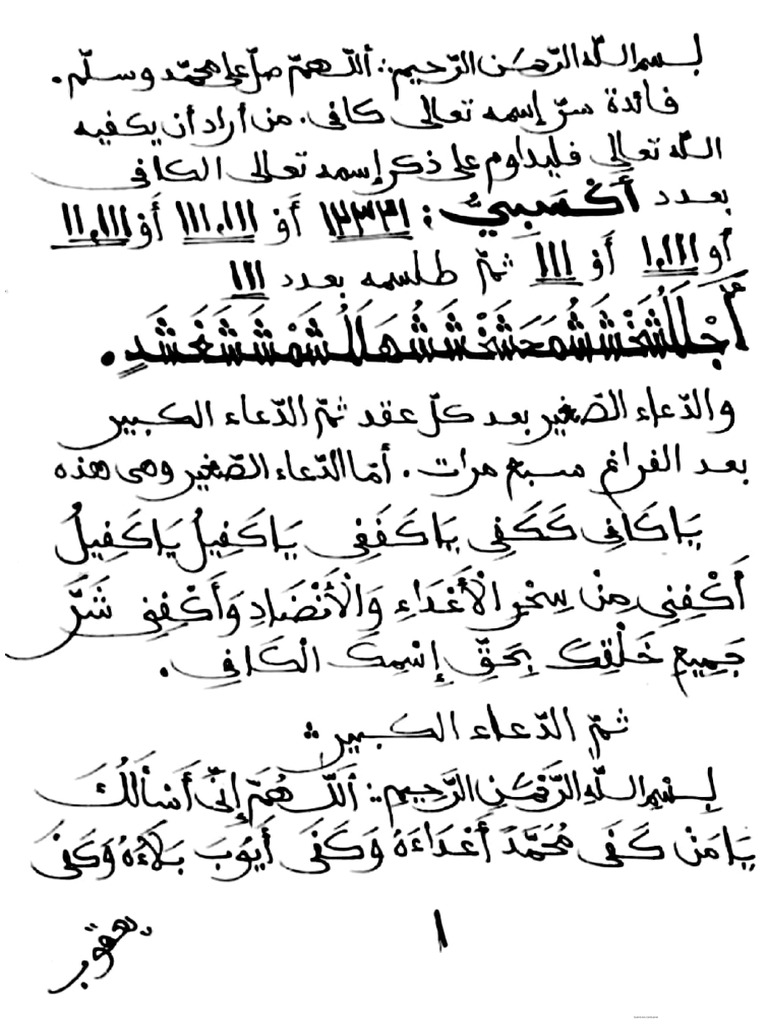 بسم الله الرّحمن الرّحيم: اللّهمّ صلّ على محمّد وسلّم.
فائدة سرّ إسمه تعالى كافى. من أراد أن يكفيه
الله تعالى فليداوم على ذكر إسمه تعالى الكافى
بعدد أَكْسَبِيُّ: ١٢٣٣١ أَوْ ١١١,١١١ أَوْ ١١,١١١
أَوْ ١,١١١ أَوْ ١١١ ثمّ طلسمه بعدد ١١١
والدّعاء الصّغير بعد كلّ عقد ثمّ الدّعاء الكبير
بعد الفراغ سبع مرات. أمّا الدّعاء الصّغير وهى هذه
يَا كَافِى كَكَفِى يَا كَفَفِى يَا كَفِيلُ يَا كَفِيلُ
أَكْفِنِى مِنْ سِحْرِ الْأَعْدَاءِ وَالْأَنْضَادِ وَأَكْفِنِى شَرَّ
جَمِيعِ خَلْقِكَ بِحَقِّ إِسْمِكَ الْكَافِى.
ثمّ الدّعاء الكبير:
بِسْمِ اللَّهِ الرَّحْمَنِ الرَّحِيمِ: اَللَّهُمَّ إِنِّى أَسْأَلُكَ
يَا مَنْ كَفَى مُحَمَّدً أَعْدَاءَهُ وَكَفَى أَيُّوبَ بَلَاءَهُ وَكَفَى
١
يعقوب